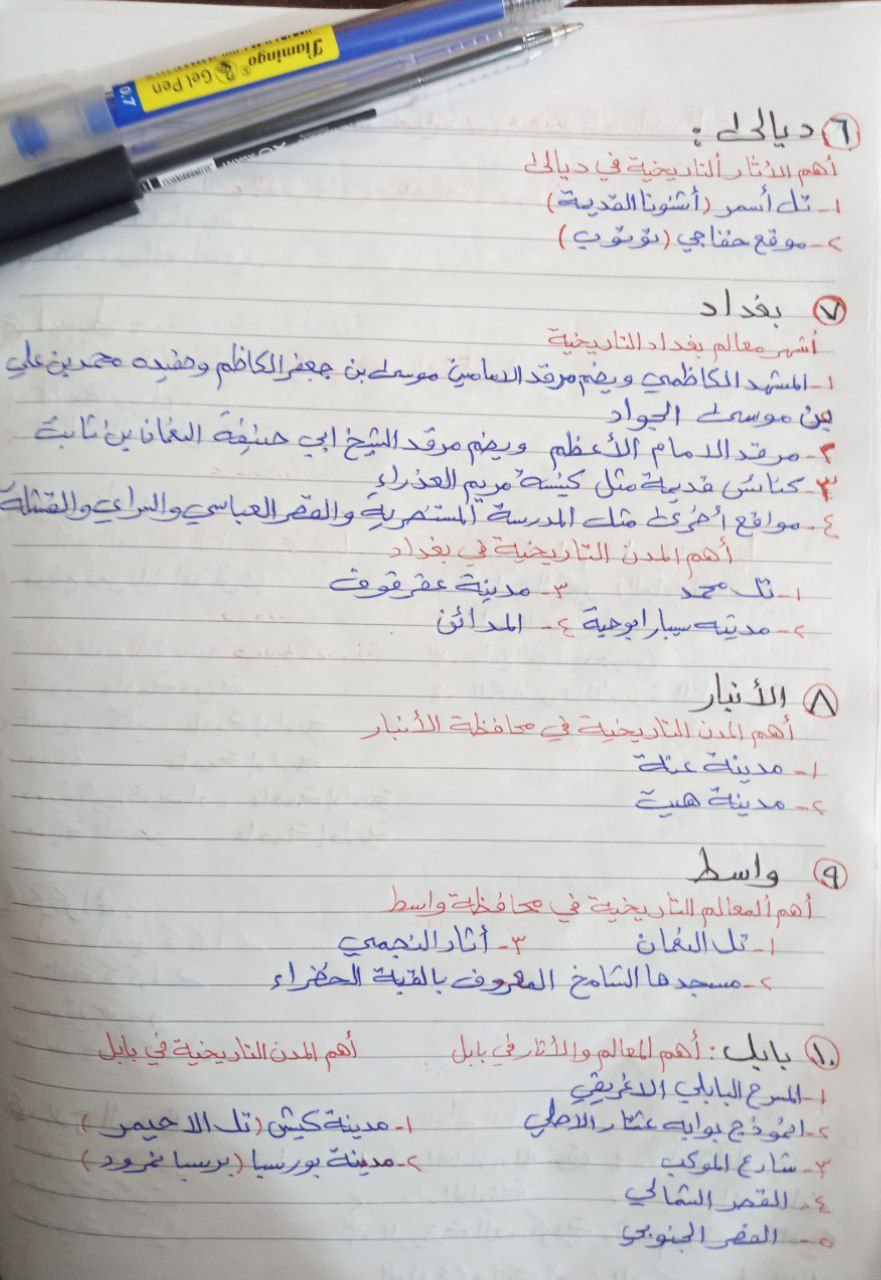 Flamingo® Gel Pen
0.7
٦ ديالى :
أهم الآثار التاريخية في ديالى
١- تل أسمر (أشنونا القديمة)
٢- موقع خفاجي (توتوب)
٧ بغداد
أشهر معالم بغداد التاريخية
١- المشهد الكاظمي ويضم مرقد الامامين موسى بن جعفر الكاظم وحفيده محمد بن علي
بن موسى الجواد
٢- مرقد الامام الأعظم ويضم مرقد الشيخ ابي حنيفة النعمان بن ثابت
٣- كنائس قديمة مثل كنيسة مريم العذراء
٤- مواقع أخرى مثل المدرسة المستنصرية والقصر العباسي والسراي والقشلة
أهم المدن التاريخية في بغداد
١- تل محمد ٣- مدينة عقرقوف
٢- مدينه سيبار ابو حبة ٤- المدائن
٨ الأنبار
أهم المدن التاريخية في محافظة الأنبار
١- مدينة عنة
٢- مدينة هيت
٩ واسط
أهم المعالم التاريخية في محافظة واسط
١- تل النعمان ٣- أثار النجمي
٢- مسجدها الشامخ المعروف بالقبة الخضراء
١٠ بابل : أهم المعالم والأثار في بابل أهم المدن التاريخية في بابل
١- المسرح البابلي الاغريقي
٢- انموذج بوابه عشتار الاصلي ١- مدينة كيش (تل الاحيمر)
٣- شارع الموكب ٢- مدينة بورسبا (برسبا نمرود)
٤- القصر الشمالي
٥- القصر الجنوبي